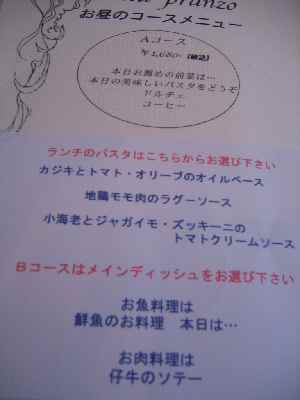 pranzo
お昼のコースメニュー
Aコース
¥1,680- (税込)
本日お薦めの前菜は…
本日の美味しいパスタをどうぞ
ドルチェ
コーヒー
ランチのパスタはこちらからお選び下さい
カジキとトマト・オリーブのオイルベース
地鶏モモ肉のラグーソース
小海老とジャガイモ・ズッキーニの
トマトクリームソース
Bコースはメインディッシュをお選び下さい
お魚料理は
鮮魚のお料理 本日は…
お肉料理は
仔牛のソテー